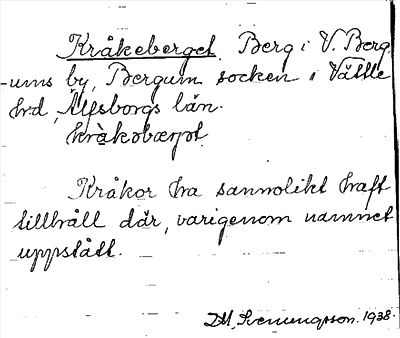 Kråkeberget. Berg i V. Berg
-ums by, Bergum socken i Vättle
hrd, Älfsborgs län.
kràkobærjət
Kråkor ha sannolikt haft
tillhåll där, varigenom namnet
uppstått.
Svenungsson. 1938.